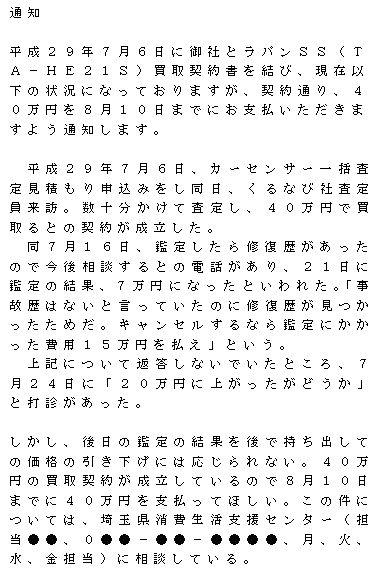 通知
平成２９年７月６日に御社とラパンＳＳ（Ｔ
Ａ－ＨＥ２１Ｓ）買取契約書を結び、現在以
下の状況になっておりますが、契約通り、４
０万円を８月１０日までにお支払いただきま
すよう通知します。
　平成２９年７月６日、カーセンサー一括査
定見積もり申込みをし同日、くるなび社査定
員来訪。数十分かけて査定し、４０万円で買
取るとの契約が成立した。
　同７月１６日、鑑定したら修復歴があった
ので今後相談するとの電話があり、２１日に
鑑定の結果、７万円になったといわれた。「事
故歴はないと言っていたのに修復歴が見つか
ったためだ。キャンセルするなら鑑定にかか
った費用１５万円を払え」という。
　上記について返答しないでいたところ、７
月２４日に「２０万円に上がったがどうか」
と打診があった。
しかし、後日の鑑定の結果を後で持ち出して
の価格の引き下げには応じられない。４０万
円の買取契約が成立しているので８月１０日
までに４０万円を支払ってほしい。この件に
ついては、埼玉県消費生活支援センター（担
当●●、０●●－●●－●●●●、月、火、
水、金担当）に相談している。